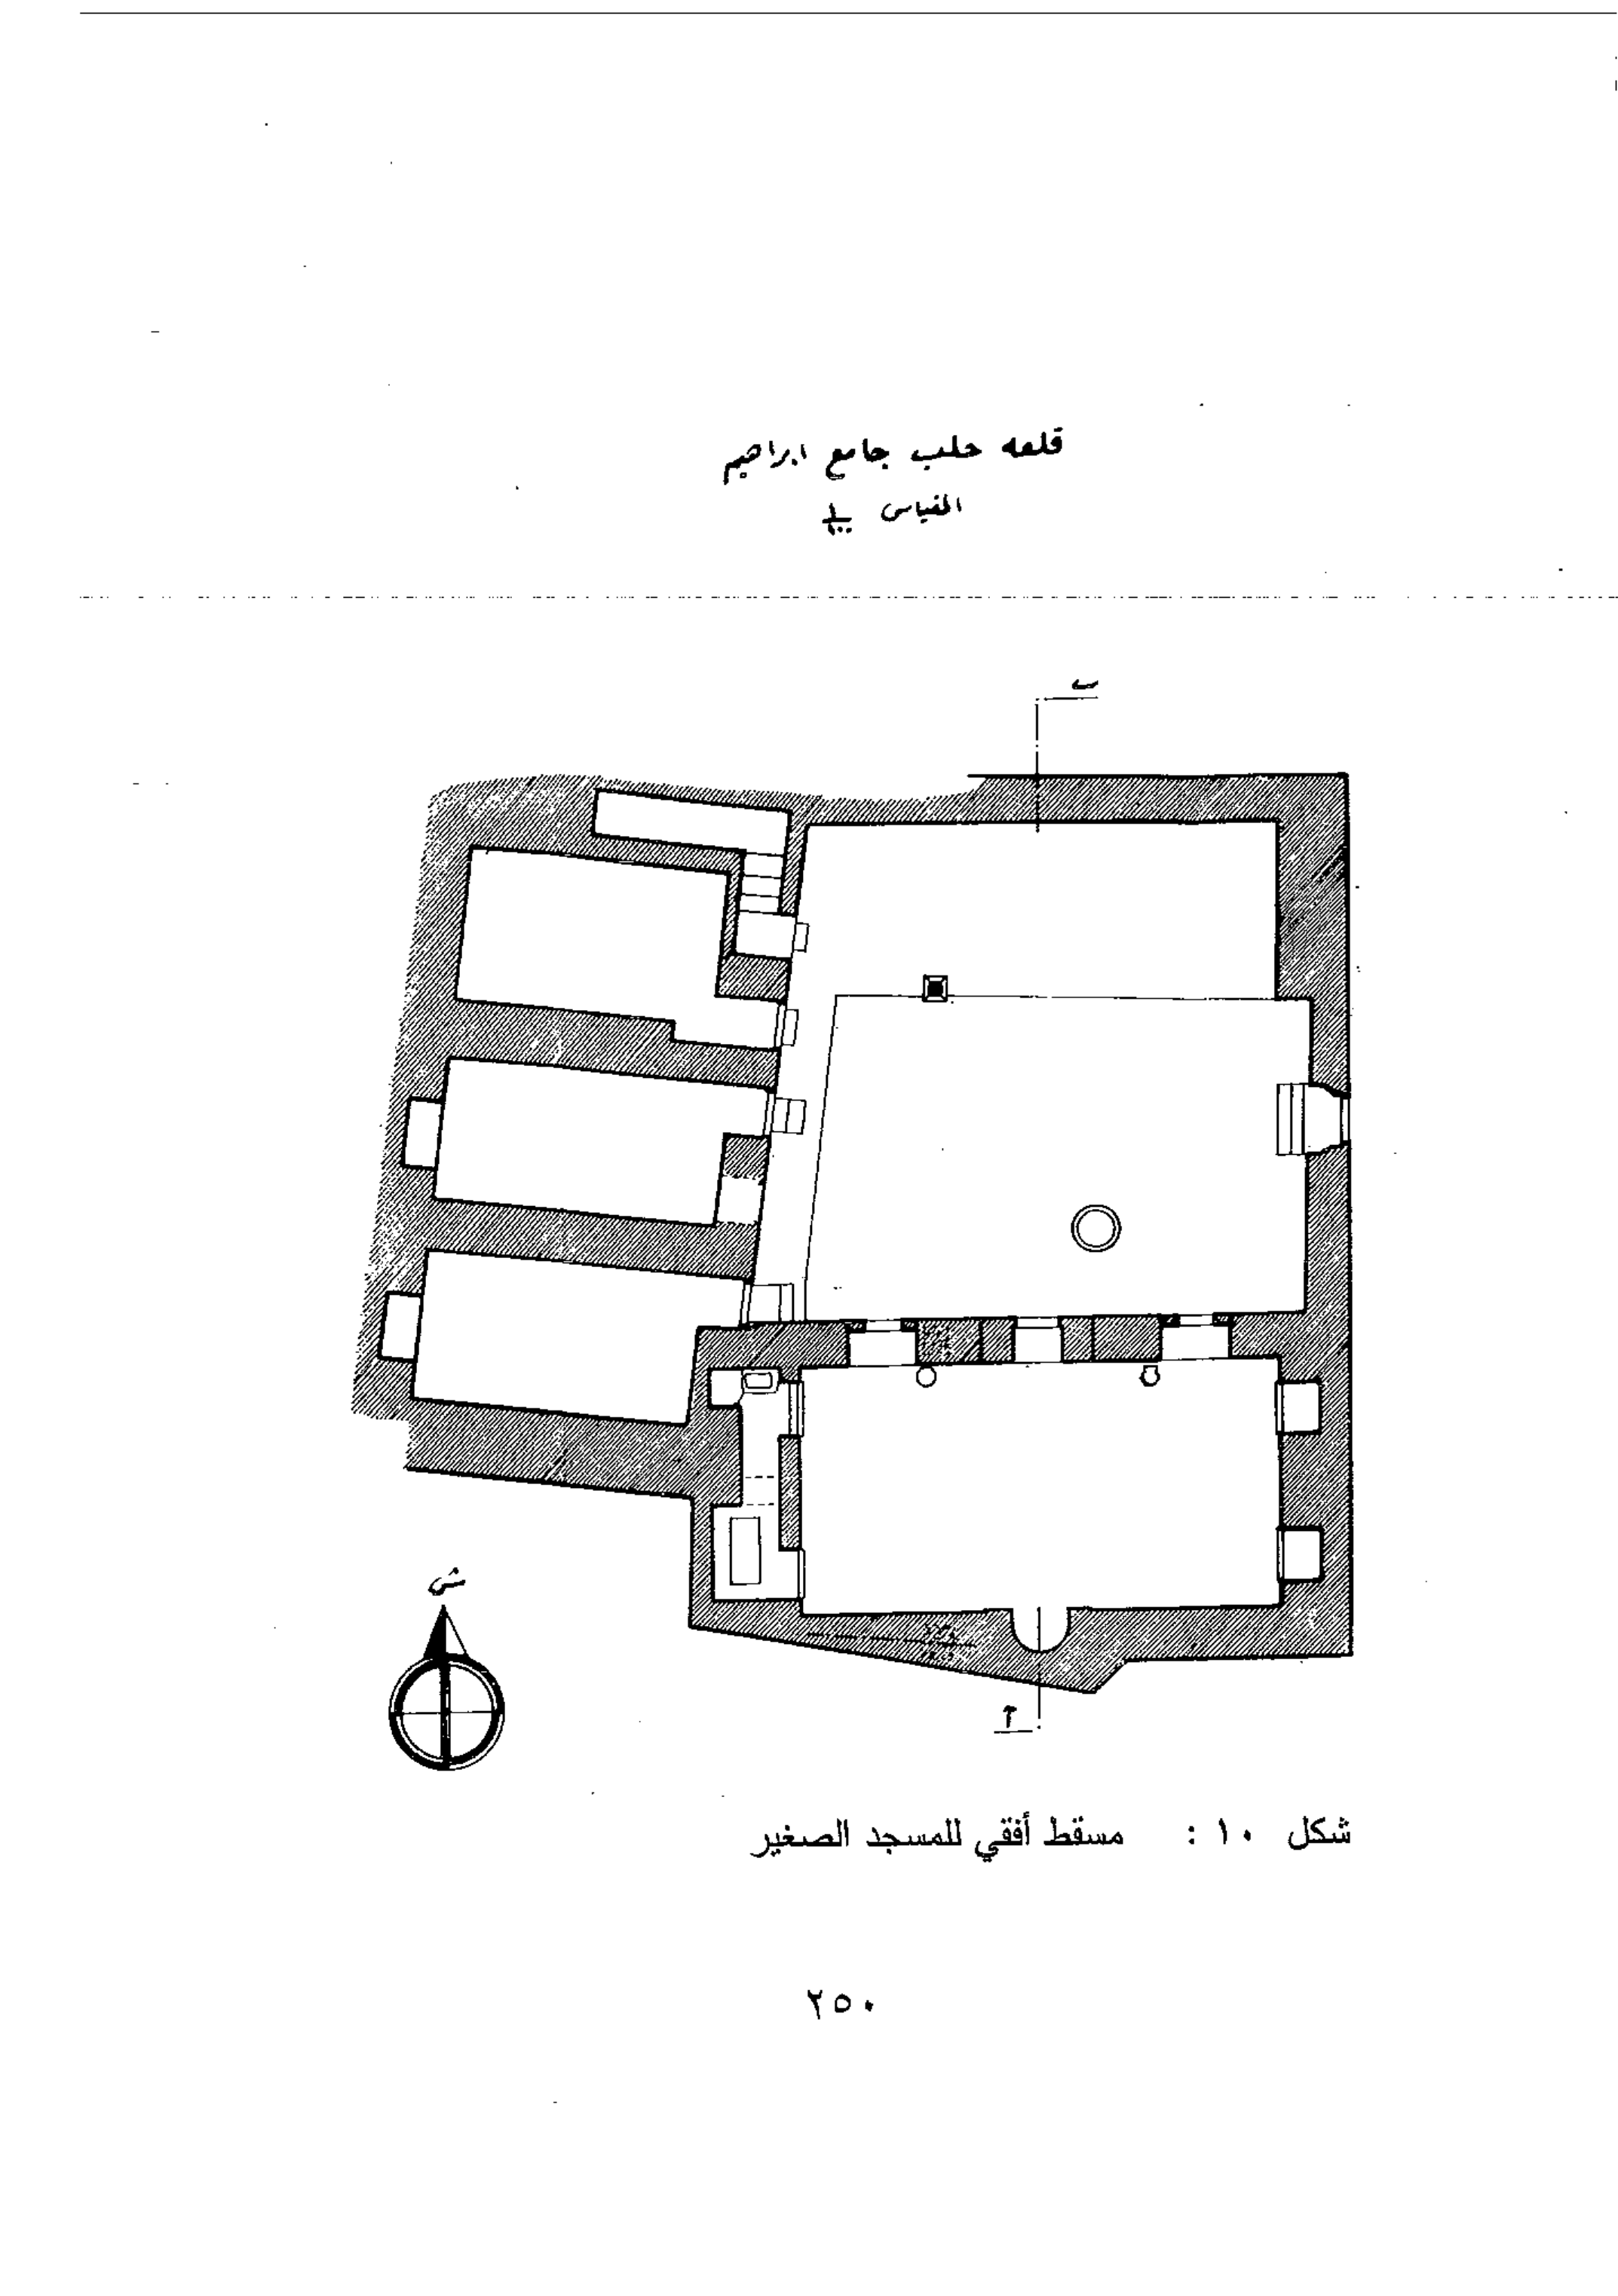 قلعه حلب جامع ابراهيم
المقياس ١/١٠٠
ب
ش
أ
شكل ١٠ : مسقط أفقي للمسجد الصغير
٢٥٠